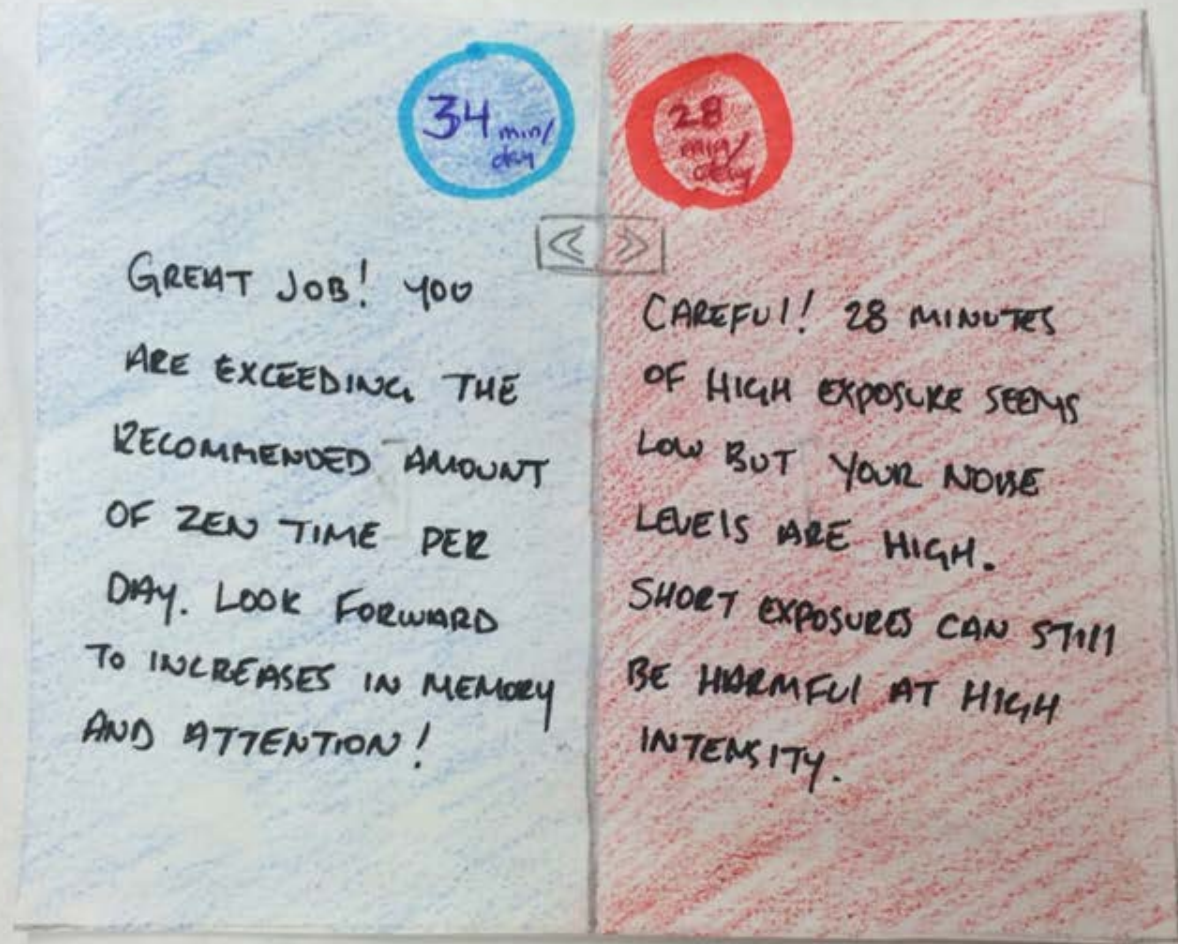 34 min/
day
GREAT JOB! YOU
ARE EXCEEDING THE
RECOMMENDED AMOUNT
OF ZEN TIME PER
DAY. LOOK FORWARD
TO INCREASES IN MEMORY
AND ATTENTION!
28
min/
day
CAREFUL! 28 MINUTES
OF HIGH EXPOSURE SEEMS
LOW BUT YOUR NOISE
LEVELS ARE HIGH.
SHORT EXPOSURES CAN STILL
BE HARMFUL AT HIGH
INTENSITY.